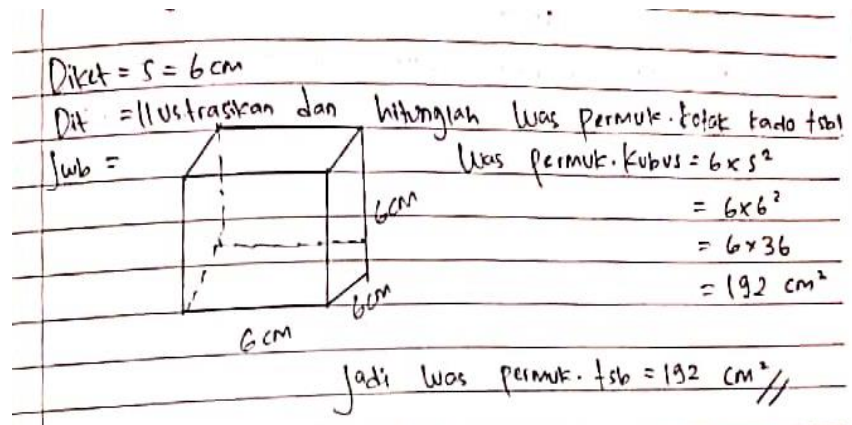 Diket = S = 6 cm
Dit = Ilustrasikan dan hitunglah luas permuk. kotak kado tsb!
Jwb =
Luas permuk. Kubus = 6 x s²
= 6x6²
= 6x36
= 192 cm²
6cm
6cm
6 cm
Jadi luas permuk. tsb = 192 cm²//